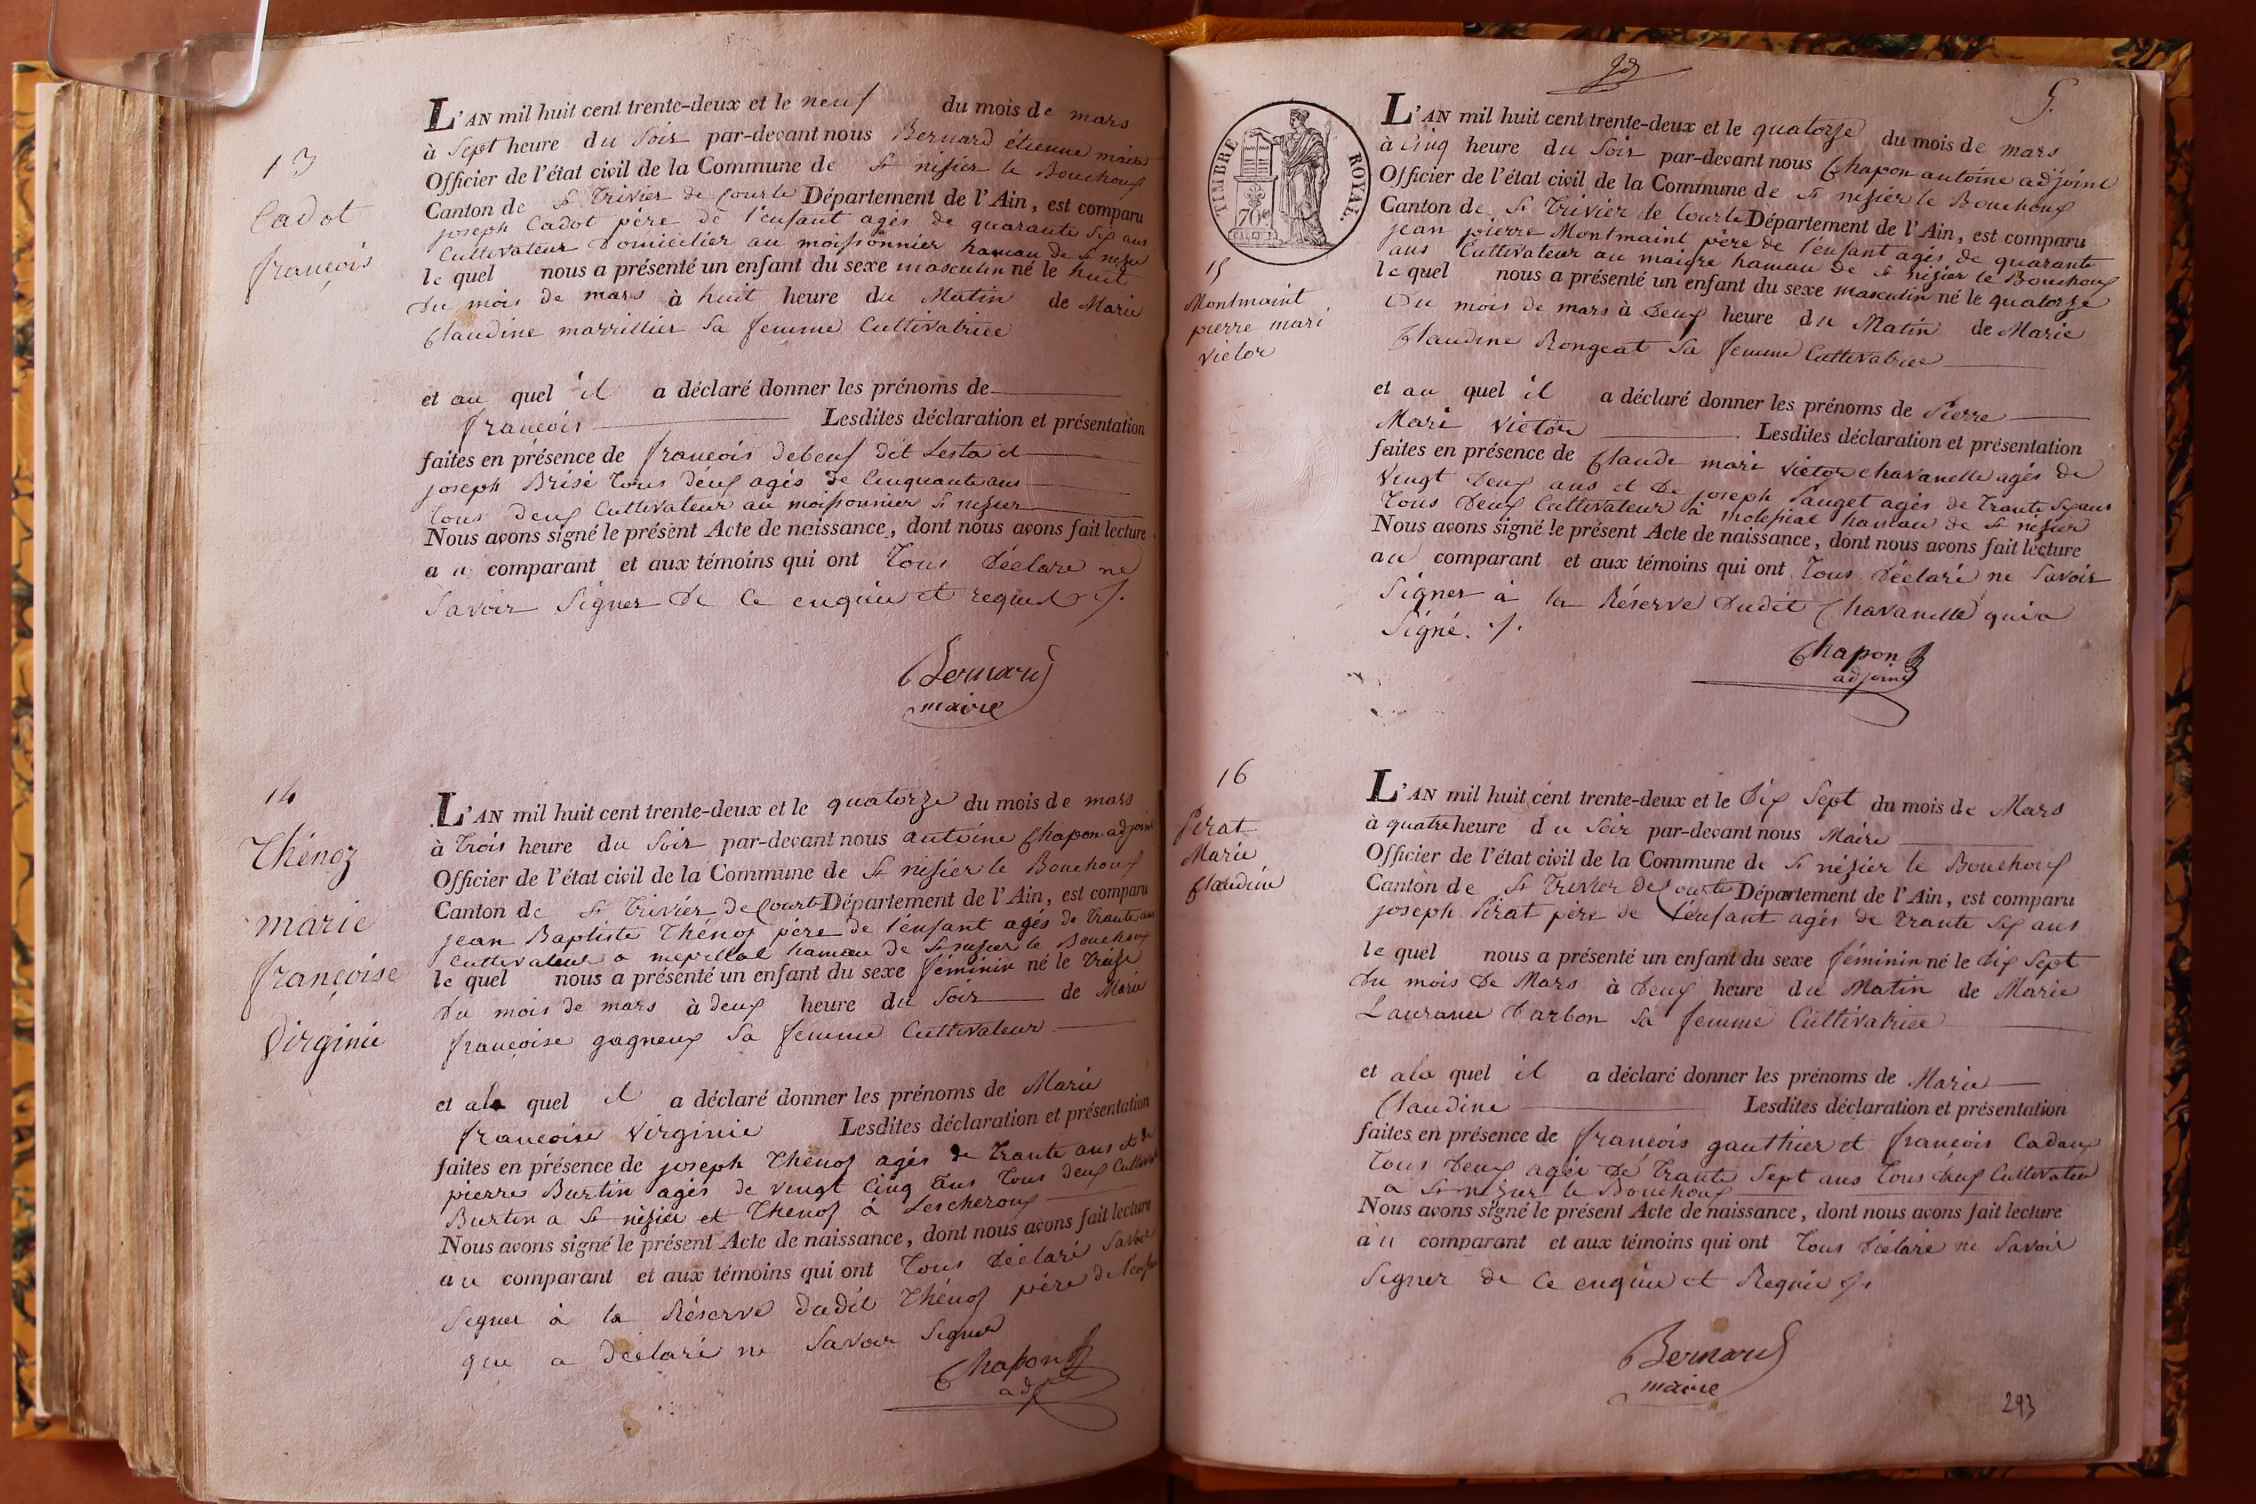 13
Cadot
françois
L'AN mil huit cent trente-deux et le neuf du mois de mars
à Sept heure du Soir par-devant nous Bernard étienne maire
Officier de l'état civil de la Commune de St nisier le Bouchoux
Canton de St Trivier de Courte Département de l'Ain, est comparu
joseph Cadot père de l'enfant agés de quarante Six ans
Cultivateur Domicilier au moissonnier hameau de St nisier
le quel nous a présenté un enfant du sexe masculin né le huit
Du mois de mars à huit heure du Matin de Marie
Claudine marrillier Sa femme Cultivatrice
et au quel il a déclaré donner les prénoms de
françois Lesdites déclaration et présentation
faites en présence de françois debeuf dit
joseph Brisé Tous deux agés de Cinquante ans
tous deux Cultivateur au moissonnier St nisier
Nous avons signé le présent Acte de naissance, dont nous avons fait lecture
au comparant et aux témoins qui ont Tous Déclaré ne
Savoir Signer De Ce enquie et requis
Bernard
maire
14
Thénoz
marie
françoise
Virginie
L'AN mil huit cent trente-deux et le quatorze du mois de mars
à Trois heure du Soir par-devant nous antoine Chapon adjoint
Officier de l'état civil de la Commune de St nisier le Bouchoux
Canton de St Trivier de Courte Département de l'Ain, est comparu
jean Baptiste Thenoz père de l'enfant agés de trante ans
Cultivateur a hameau de St nisier le Bouchoux
le quel nous a présenté un enfant du sexe féminin né le Treize
Du mois de mars à deux heure du Soir de Marie
françoise gagneux Sa femme Cultivateur
et a la quel il a déclaré donner les prénoms de Marie
françoise Virginie Lesdites déclaration et présentation
faites en présence de joseph Thenoz agés de Trante ans et de
pierre Burtin agés de vingt Cinq ans Tous deux Cultivat
Burtin a St nisier et Thenoz à Lescheroux
Nous avons signé le présent Acte de naissance, dont nous avons fait lecture
au comparant et aux témoins qui ont Tous Déclaré Savoir
Signer à la Réserve dudit Thénoz père de l'enfant
qui a Déclaré ne Savoir Signer
Chapon
adjt
5.
TIMBRE ROYAL.
15
Montmaint
pierre mari
victor
L'AN mil huit cent trente-deux et le quatorze du mois de mars
à Cinq heure du Soir par-devant nous Chapon antoine adjoint
Officier de l'état civil de la Commune de St nisier le Bouchoux
Canton de St Trivier de Courte Département de l'Ain, est comparu
jean pierre Montmaint père de l'enfant agés de quarante
ans Cultivateur au maigre hameau de St nizier le Bouchoux
le quel nous a présenté un enfant du sexe masculin né le quatorze
Du mois de mars à Deux heure du Matin de Marie
Claudine Rongeat Sa femme Cultivatrice
et au quel il a déclaré donner les prénoms de Pierre
Mari Victor Lesdites déclaration et présentation
faites en présence de Claude mari victor chavanelle agés de
Vingt Deux ans et De joseph Pauget agés de Trante Six ans
Tous Deux Cultivateur à hameau de St nisier
Nous avons signé le présent Acte de naissance, dont nous avons fait lecture
au comparant et aux témoins qui ont Tous Déclaré ne Savoir
Signer à la Réserve Dudit Chavanelle qui a
Signé.
Chapon
adjoint
16
Pirat
Marie
Claudine
L'AN mil huit cent trente-deux et le Dix Sept du mois de Mars
à quatre heure du Soir par-devant nous Maire
Officier de l'état civil de la Commune de St nisier le Bouchoux
Canton de St Trivier de Courte Département de l'Ain, est comparu
joseph Pirat père de l'enfant agés de trante Six ans
le quel nous a présenté un enfant du sexe féminin né le dix Sept
Du mois De Mars à Deux heure du Matin de Marie
Laurance Darbon Sa femme Cultivatrice
et a la quel il a déclaré donner les prénoms de Marie
Claudine Lesdites déclaration et présentation
faites en présence de françois gauthier et françois Cadoux
Tous Deux agés De Trante Sept ans Tous deux Cultivateur
a St nisier le Bouchoux
Nous avons signé le présent Acte de naissance, dont nous avons fait lecture
au comparant et aux témoins qui ont Tous Déclaré ne Savoir
Signer de Ce enquie et Requie
Bernard
maire
293